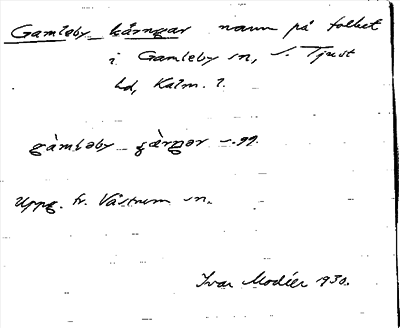 Gamleby kårngar namn på folket
i Gamleby sn, S. Tjust
hd, Kalm. l.
gàmləby
Uppg. fr. Västrum sn.
Ivar Modéer 1930.